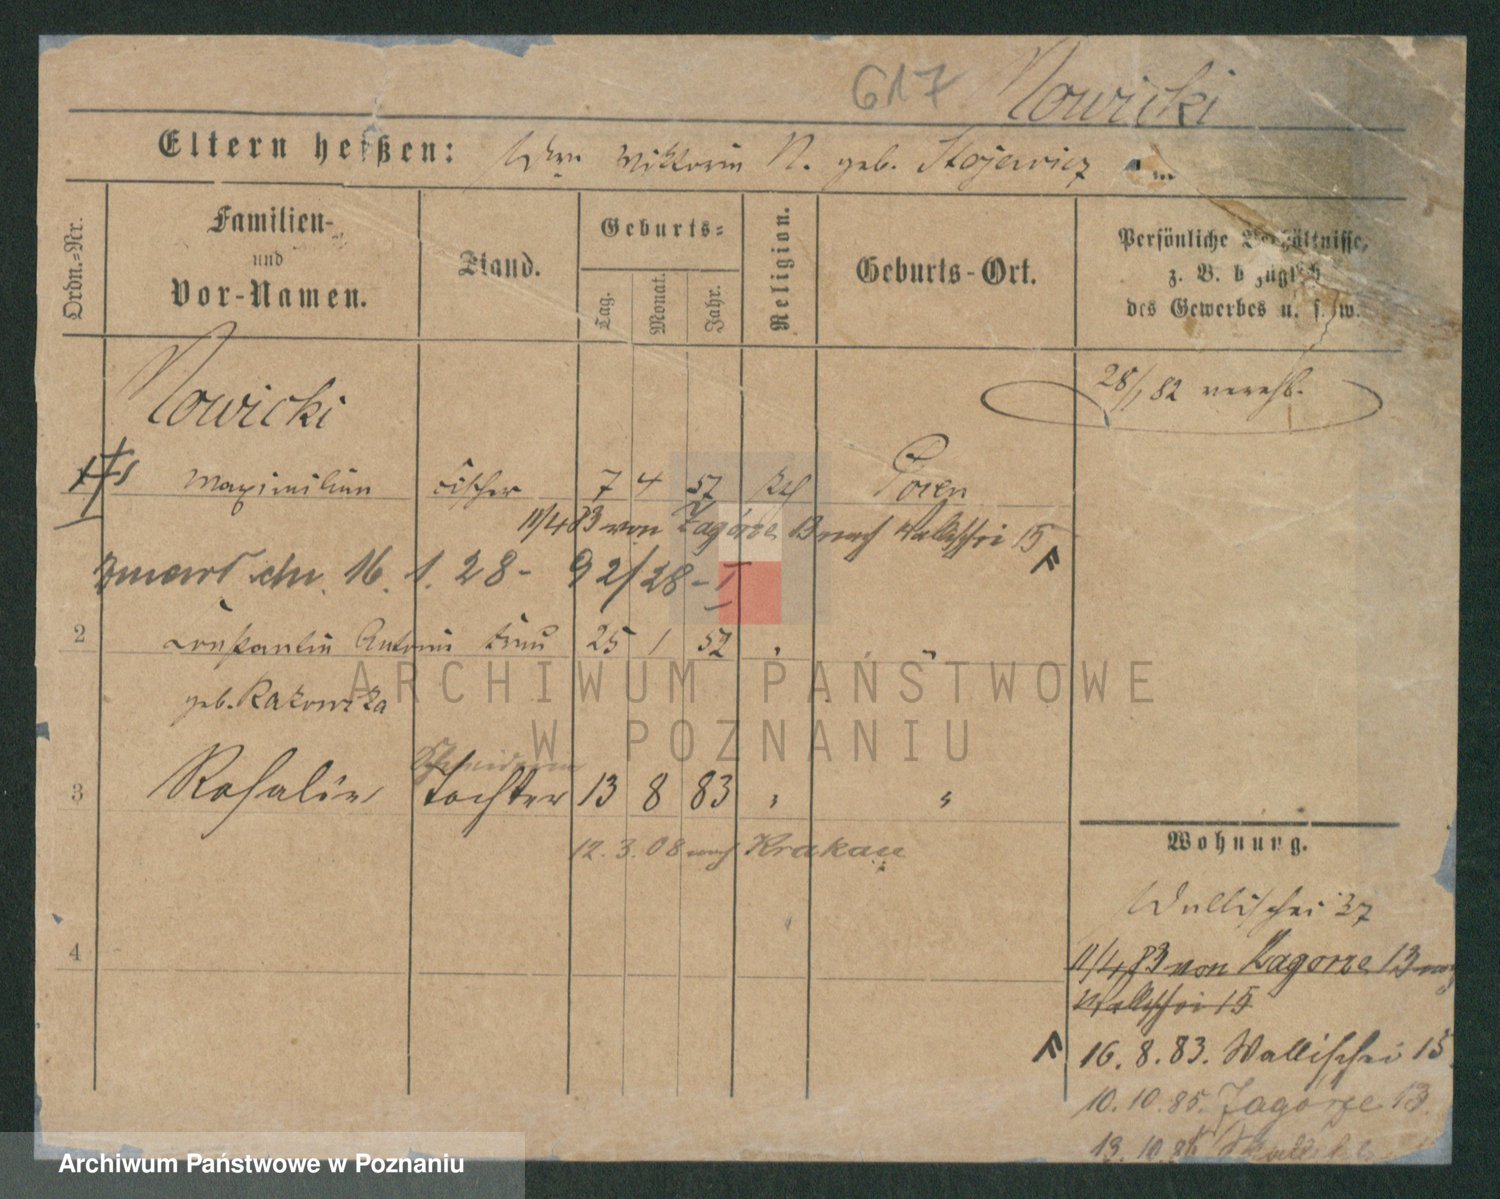 617 Nowicki
Eltern heißen: Wwe Viktoria N. geb. Stojewicz
Ordn.-Nr.
Familien-
und
Vor-Namen.
Stand.
Geburts-
Tag. Monat. Jahr.
Religion.
Geburts-Ort.
Persönliche Verhältnisse,
z. B. bezüglich
des Gewerbes u. s. w.
28/1 82 verehl.
Nowicki
Maximilian 7 4 57 kth Posen
11/4 83 von Zagórze 13 nach Wallischei 15
zmarł dn. 16. 1. 28 - 92/28 - I
2 Constantia Antonie Frau 25 1 52 "
geb. Rakowska
3 Rosalie Tochter 13 8 83 " "
12. 3. 08 nach Krakau
4
Wohnung.
Wallischei 37
11/4 83 von Zagorze 13 nach
Wallischei 15
16. 8. 83. Wallischei 15
10. 10. 85. Zagórze 13
ARCHIWUM PAŃSTWOWE
W POZNANIU
Archiwum Państwowe w Poznaniu